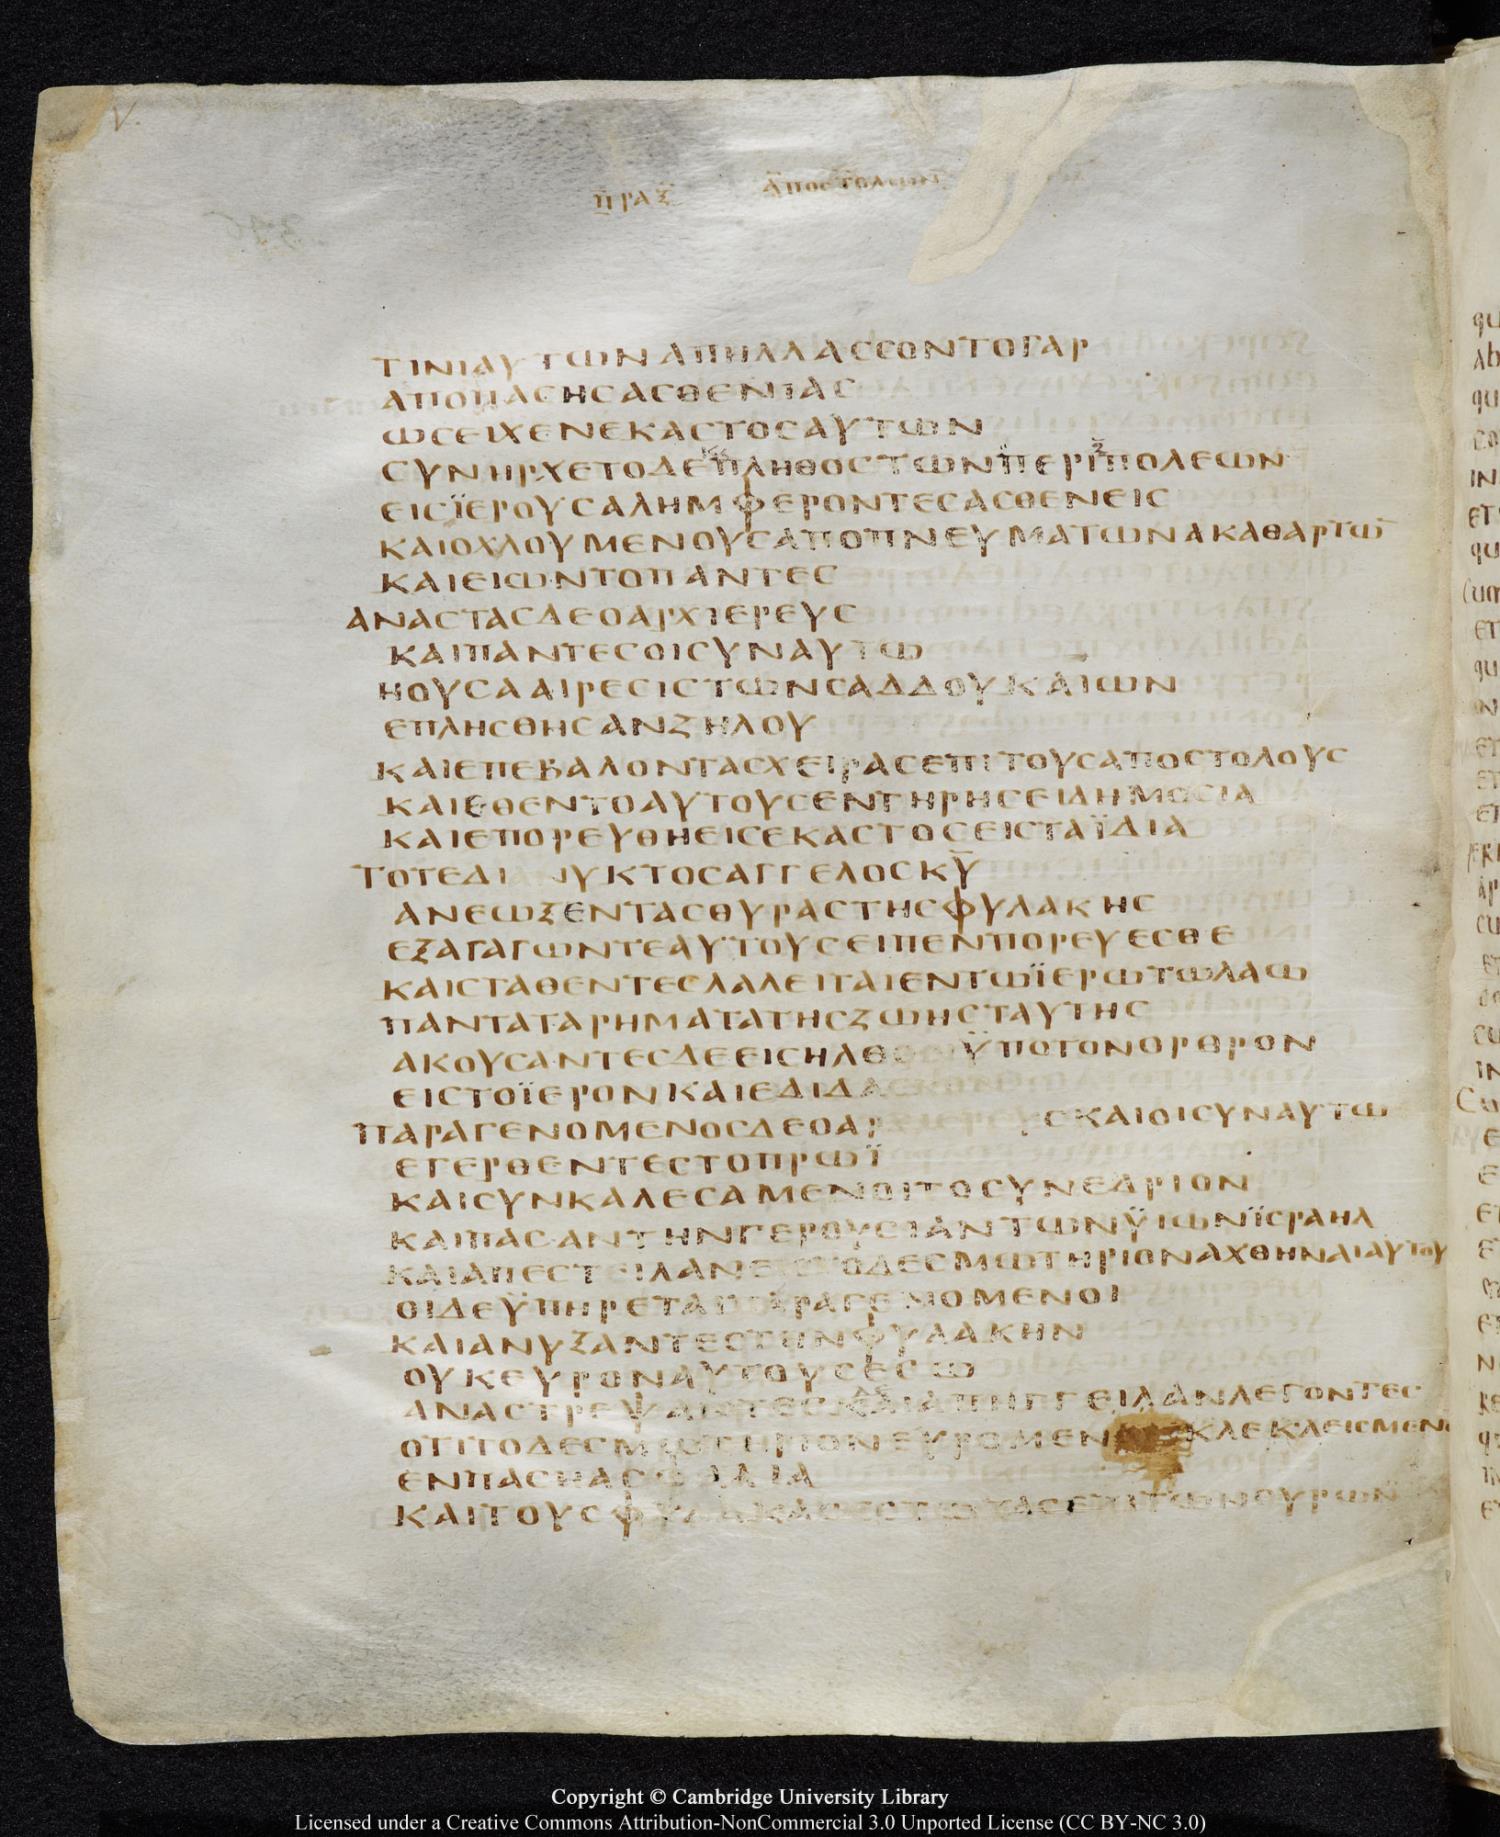 ΠΡΑΞ ΑΠΟСΤΟΛΩΝ
ΤΙΝΙΑΥΤΩΝΑΠΗΛΛΑССΟΝΤΟΓΑΡ
ΑΠΟΠΑСΗСΑСΘΕΝΙΑС
ΩСΕΙΧΕΝΕΚΑСΤΟСΑΥΤΩΝ
СΥΝΗΡΧΕΤΟΔΕΠΛΗΘΟСΤΩΝΠΕΡΙΠΟΛΕΩΝ
ΕΙСΪΕΡΟΥСΑΛΗΜΦΕΡΟΝΤΕСΑСΘΕΝΕΙС
ΚΑΙΟΧΛΟΥΜΕΝΟΥСΑΠΟΠΝΕΥΜΑΤΩΝΑΚΑΘΑΡΤΩ̅
ΚΑΙΕΙΩΝΤΟΠΑΝΤΕС
ΑΝΑСΤΑСΔΕΟΑΡΧΙΕΡΕΥС
ΚΑΙΠΑΝΤΕСΟΙСΥΝΑΥΤΩ
ΗΟΥСΑΑΙΡΕСΙСΤΩΝСΑΔΔΟΥΚΑΙΩΝ
ΕΠΛΗСΘΗСΑΝΖΗΛΟΥ
ΚΑΙΕΠΕΒΑΛΟΝΤΑСΧΕΙΡΑСΕΠΙΤΟΥСΑΠΟСΤΟΛΟΥС
ΚΑΙΕΘΕΝΤΟΑΥΤΟΥСΕΝΤΗΡΗСΕΙΔΗΜΟСΙΑ
ΚΑΙΕΠΟΡΕΥΘΗΕΙСΕΚΑСΤΟСΕΙСΤΑΪΔΙΑ
ΤΟΤΕΔΙΑΝΥΚΤΟСΑΓΓΕΛΟСΚ̅Υ̅
ΑΝΕΩΞΕΝΤΑСΘΥΡΑСΤΗСΦΥΛΑΚΗС
ΕΞΑΓΑΓΩΝΤΕΑΥΤΟΥСΕΙΠΕΝΠΟΡΕΥΕСΘΕ
ΚΑΙСΤΑΘΕΝΤΕСΛΑΛΕΙΤΑΙΕΝΤΩΪΕΡΩΤΩΛΑΩ
ΠΑΝΤΑΤΑΡΗΜΑΤΑΤΗСΖΩΗСΤΑΥΤΗС
ΑΚΟΥСΑΝΤΕСΔΕΕΙСΗΛΘΟΝΫΠΟΤΟΝΟΡΘΡΟΝ
ΕΙСΤΟΪΕΡΟΝΚΑΙΕΔΙΔΑ
ΠΑΡΑΓΕΝΟΜΕΝΟСΔΕΟΑΡΧΙΕΡΕΥСΚΑΙΟΙСΥΝΑΥΤΩ
ΕΓΕΡΘΕΝΤΕСΤΟΠΡΩΪ
ΚΑΙСΥΝΚΑΛΕСΑΜΕΝΟΙΤΟСΥΝΕΔΡΙΟΝ
ΚΑΙΠΑСΑΝΤΗΝΓΕΡΟΥСΙΑΝΤΩΝΫΙΩΝΪСΡΑΗΛ
ΚΑΙΑΠΕСΤΕΙΛΑΝΕΙСΤΟΔΕСΜΩΤΗΡΙΟΝΑΧΘΗΝΑΙΑΥΤΟΥ
ΟΙΔΕΫΠΗΡΕΤΑΙΠΑΡΑΓΕΝΟΜΕΝΟΙ
ΚΑΙΑΝΥΞΑΝΤΕСΤΗΝΦΥΛΑΚΗΝ
ΟΥΚΕΥΡΟΝΑΥΤΟΥСΕСΩ
ΑΝΑСΤΡΕΨΑΝΤΕСΚΑΙΑΠΗΓΓΕΙΛΑΝΛΕΓΟΝΤΕС
ΟΤΙΤΟΔΕСΜΩΤΗΡΙΟΝΕΥΡΟΜΕΝ ΚΛΕΚΛΕΙСΜΕΝΟ
ΕΝΠΑСΗΑСΦΑΛΙΑ
ΚΑΙΤΟΥСΦΥΛΑΚΑСΕСΤΩΤΑСΕΠΙΤΩΝΘΥΡΩΝ
Copyright © Cambridge University Library
Licensed under a Creative Commons Attribution-NonCommercial 3.0 Unported License (CC BY-NC 3.0)